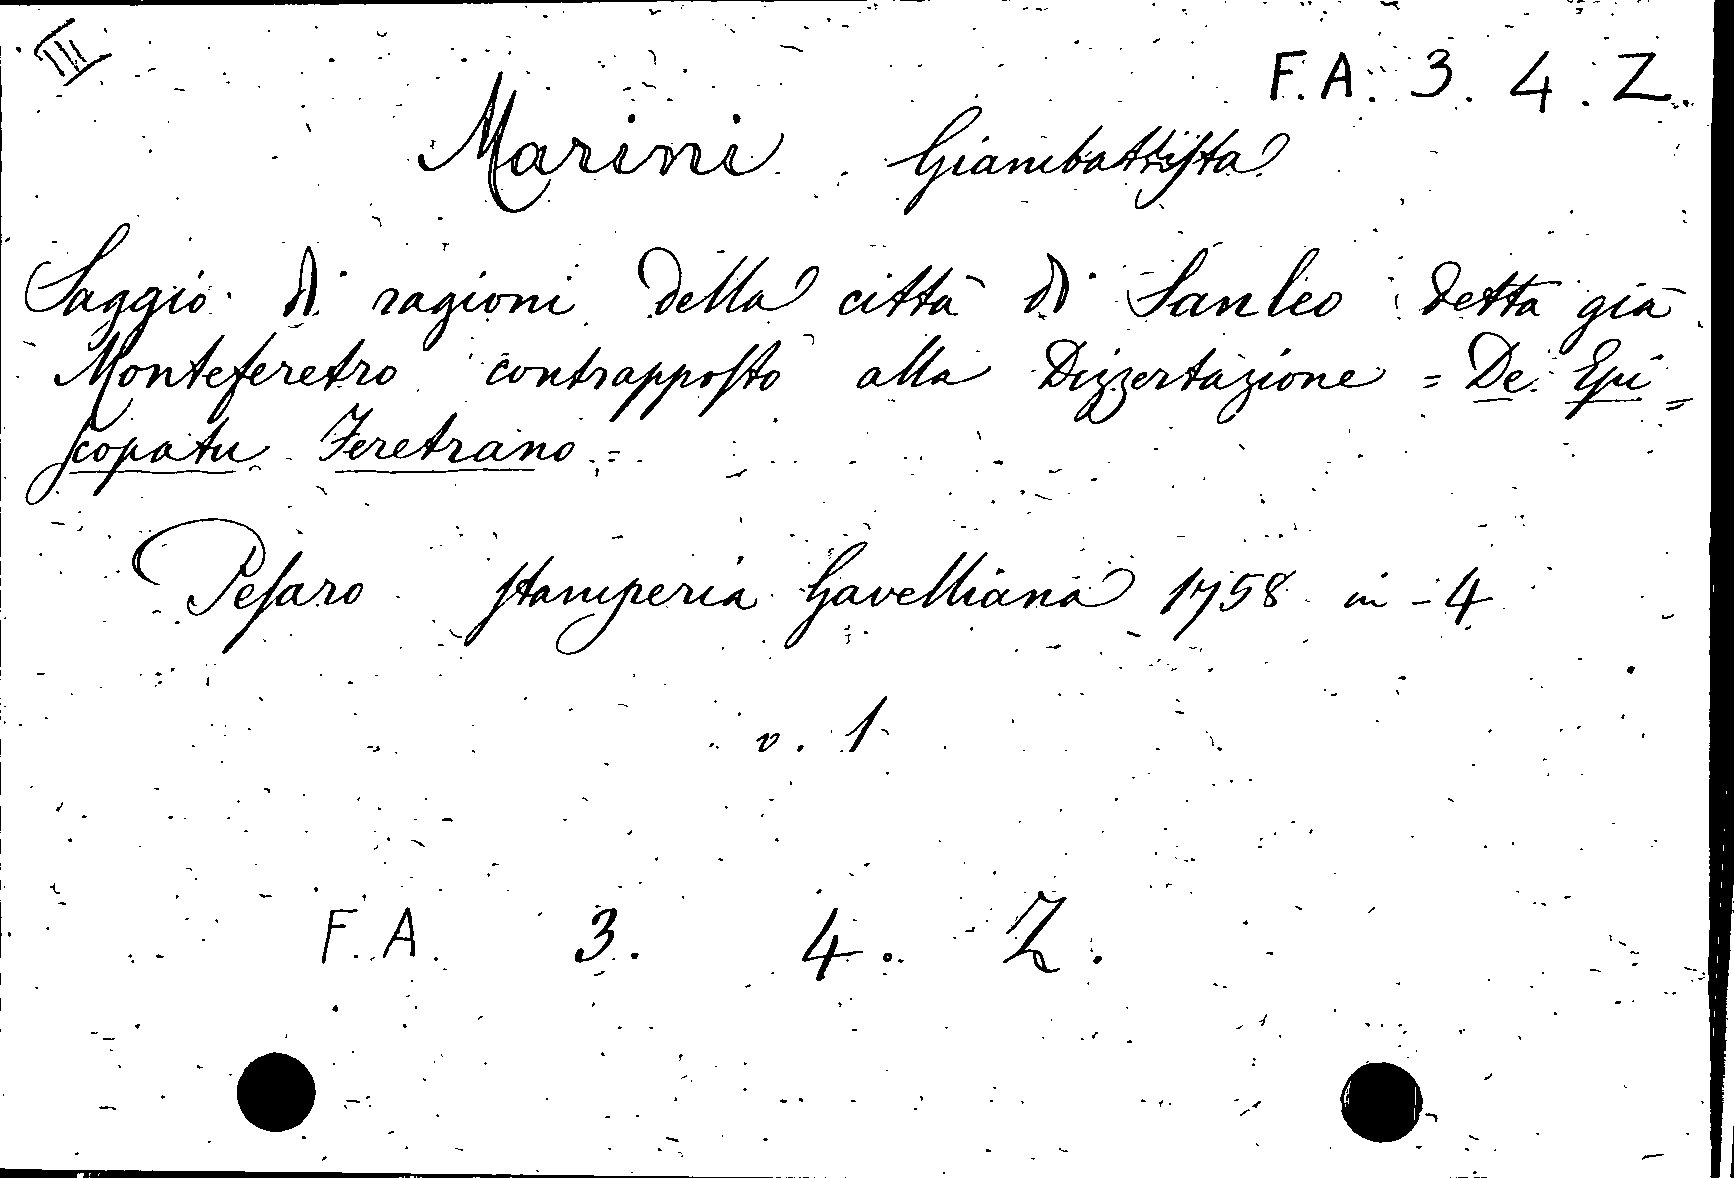 III
F. A. 3. 4. Z.
Marini Giambattista
Saggio di ragioni della città di Sanleo detta già
Monteferetro contrapposto alla Dizzertazione = De Epi=
scopatu Feretrano =
Pesaro stamperia Gavelliana 1758 in-4
v. 1
F. A. 3. 4. Z.